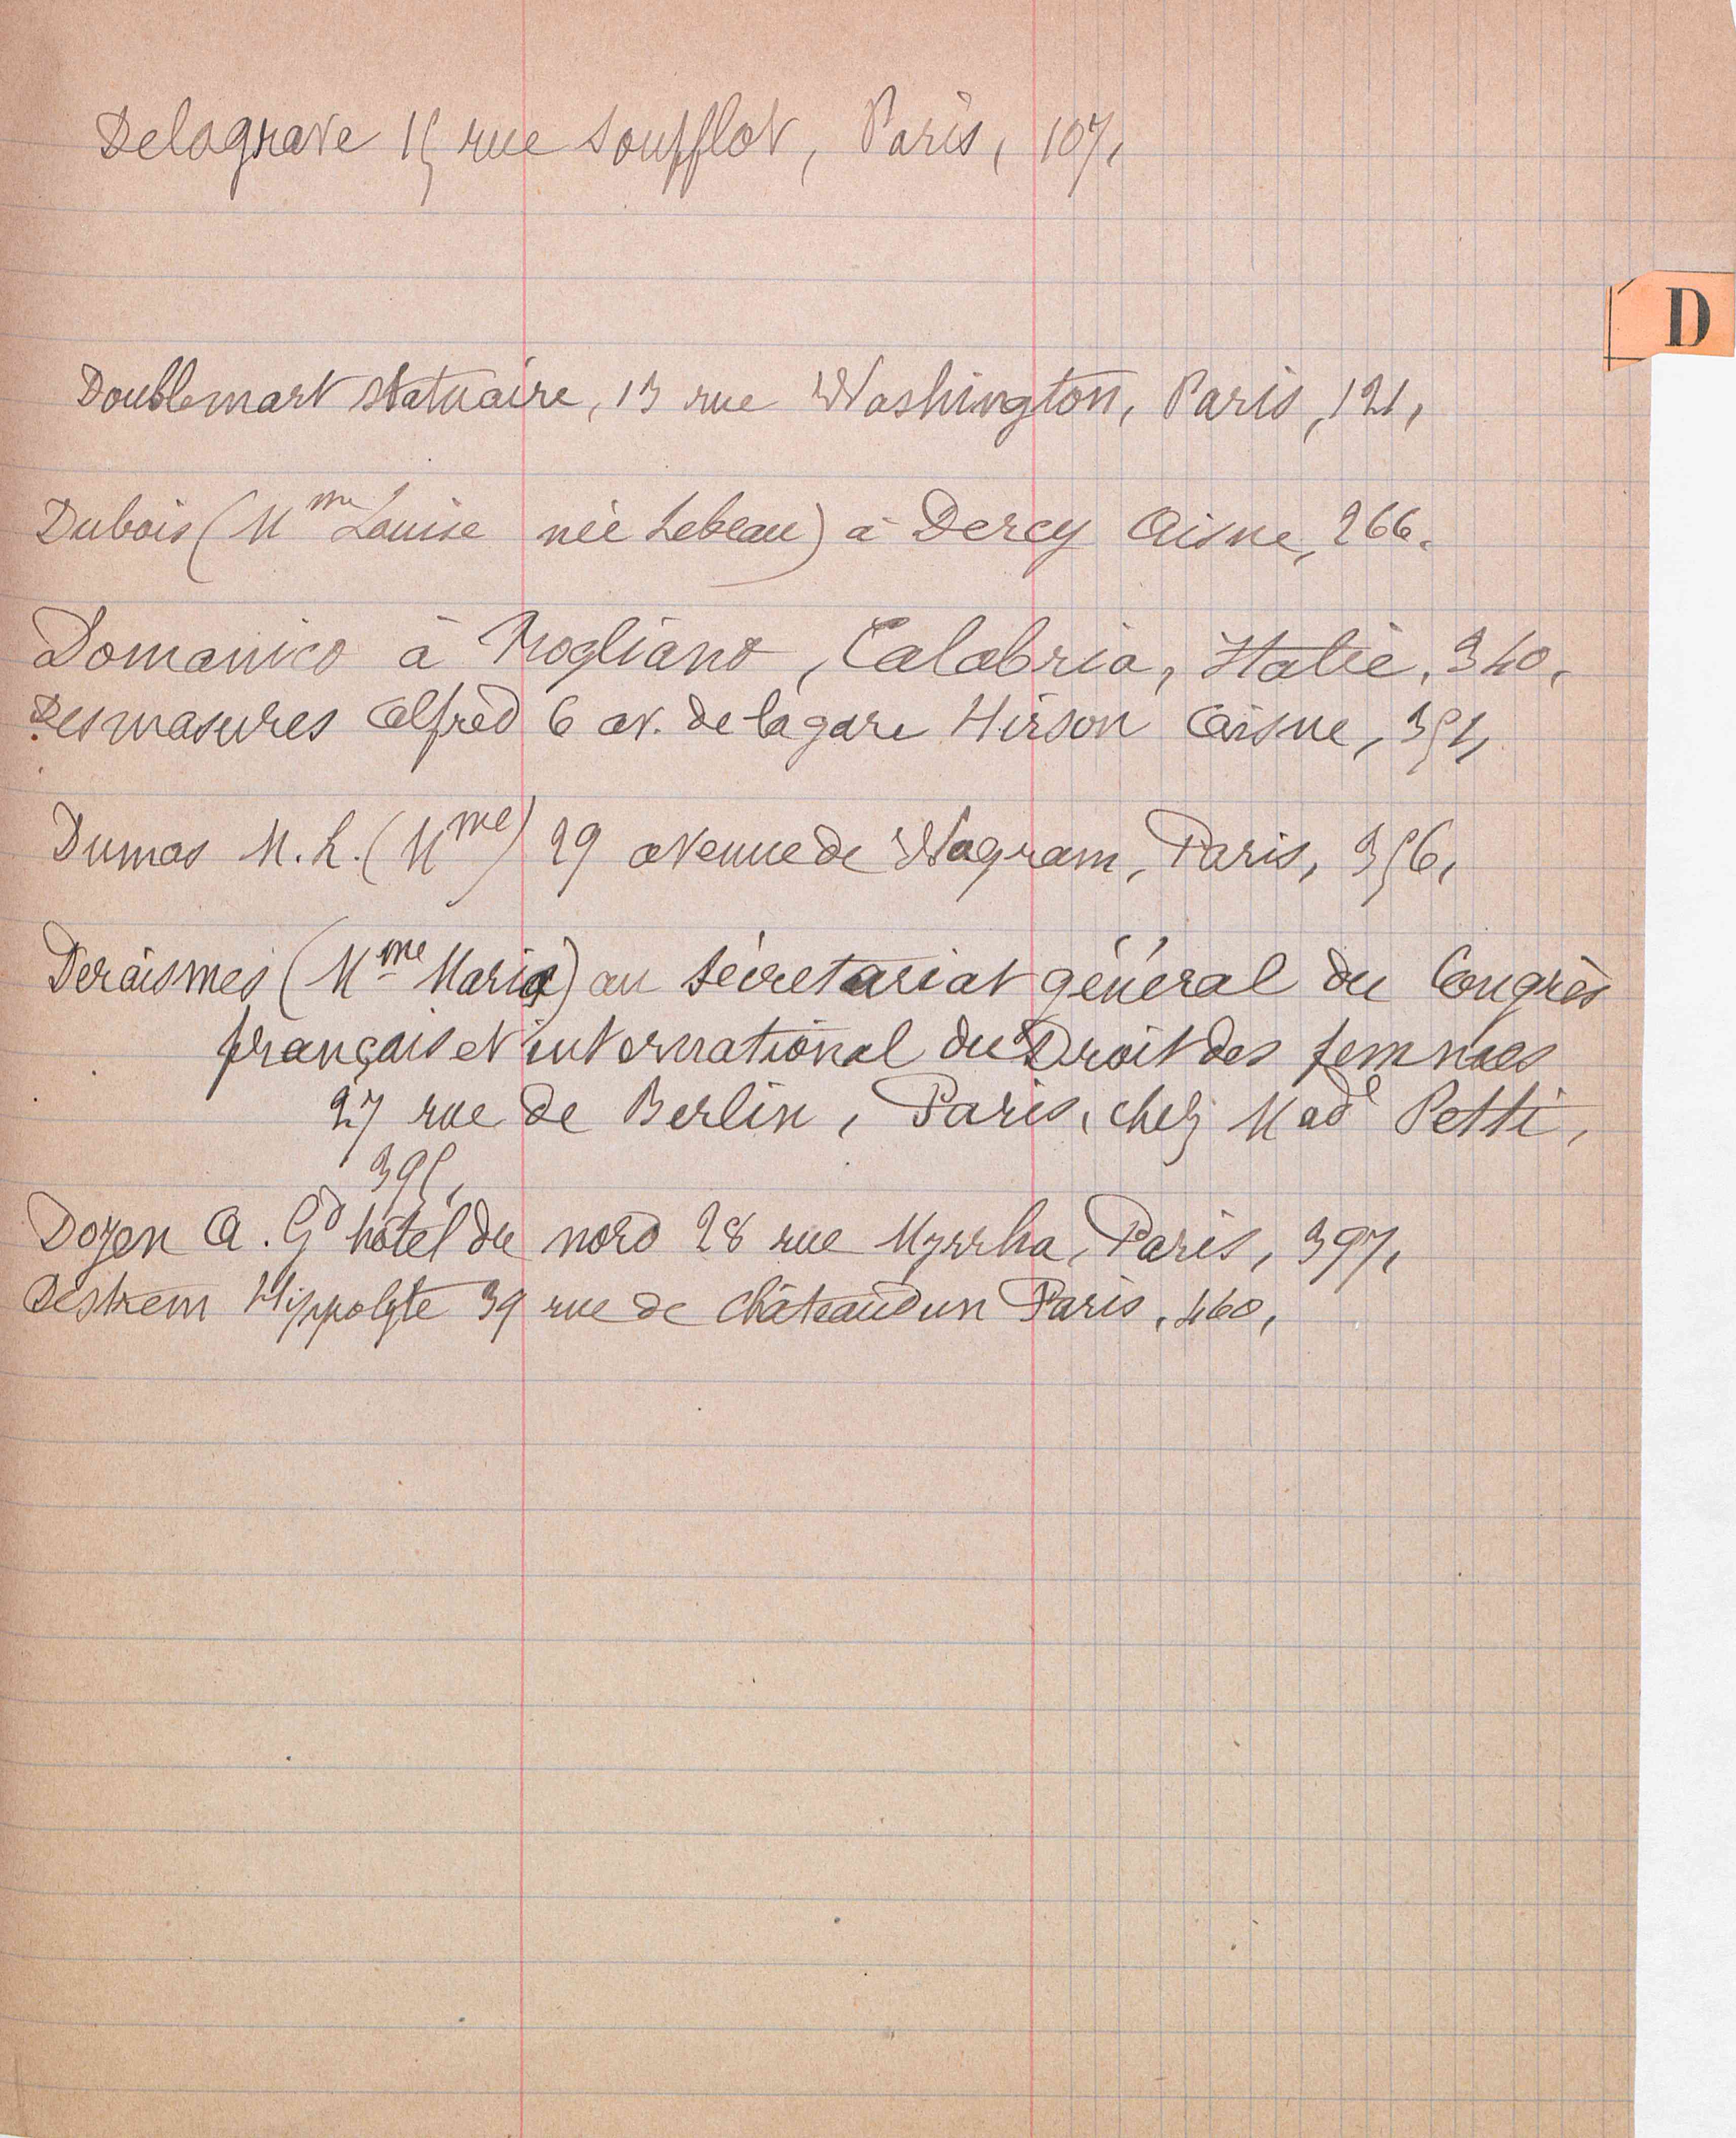 Delagrave 15 rue Soufflot, Paris, 107,
D
Doublemart statuaire, 13 rue Washington, Paris, 121,
Dubois (Mme Louise née Lebeau) à Dercy Aisne, 266.
Domanico à Rogliano, Calabria, Italie, 340,
Desmasures Alfred 6 av. de la gare Hirson Aisne, 351,
Dumas M. L. (Mme) 29 avenue de Wagram, Paris, 356,
Deraismes (Mme Maria) au secrétariat général du Congrès
français et international du Droit des femmes
27 rue de Berlin, Paris, chez Made Petti,
395,
Doyen A. Gd hôtel du nord 28 rue Myrrha, Paris, 397,
Destrem Hippolyte 39 rue de Châteaudun Paris, 460,